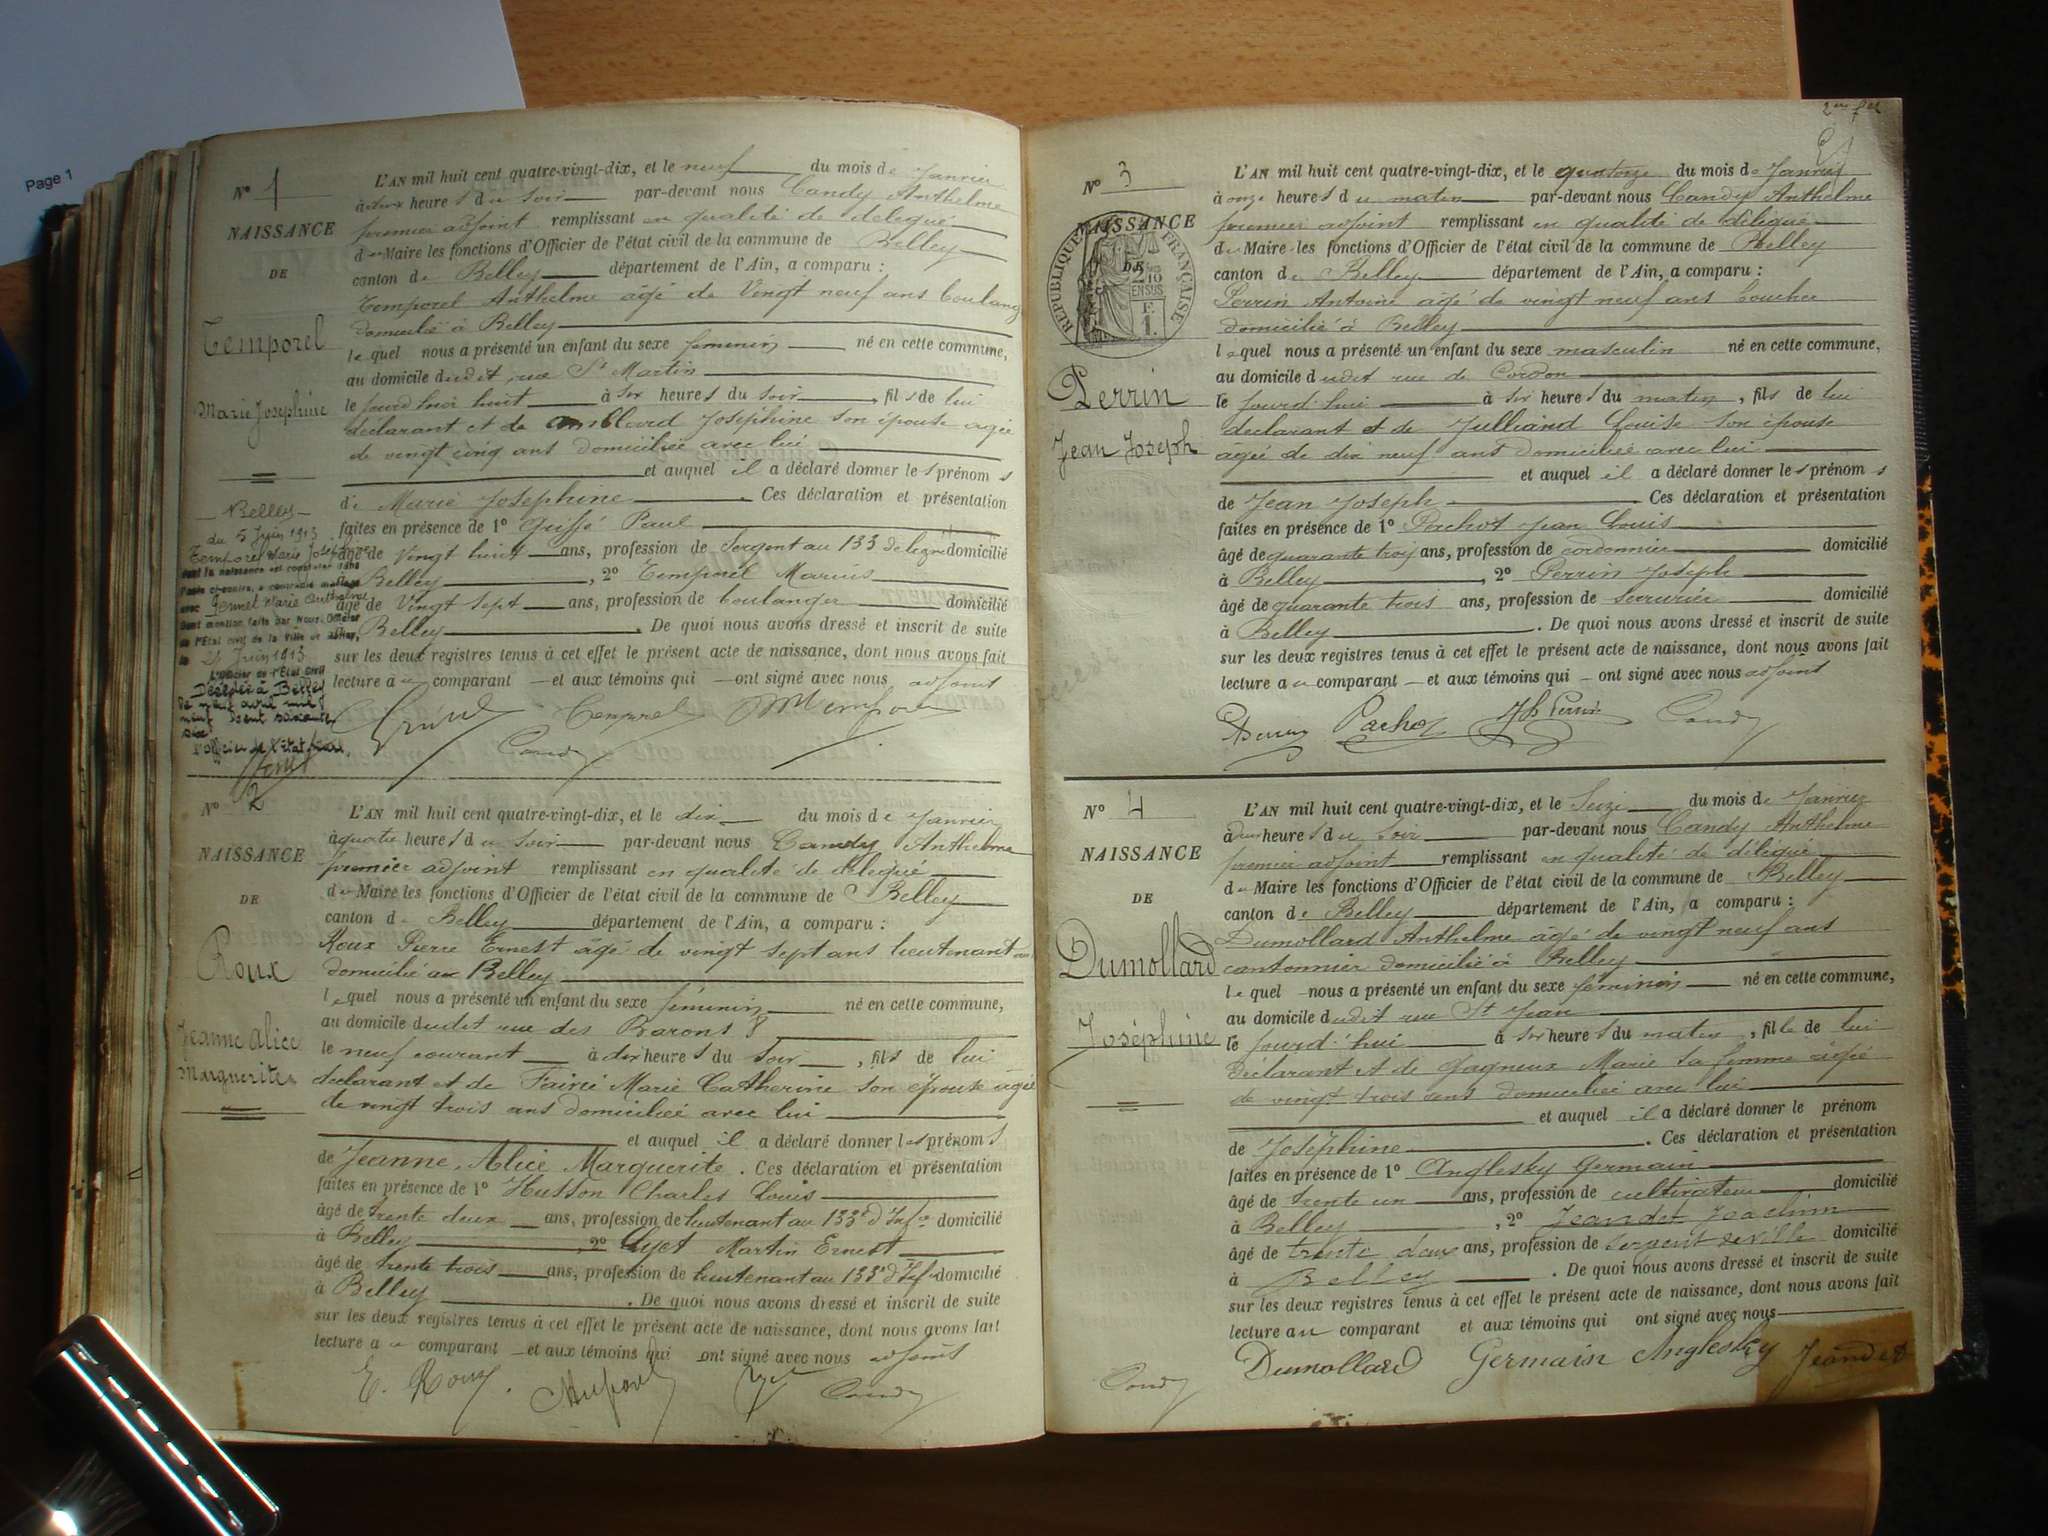 Page 1
N° 1
NAISSANCE
DE
Temporel
Marie Josephine
L'AN mil huit cent quatre-vingt-dix, et le neuf du mois de Janvier
à deux heures du soir par-devant nous Candy Anthelme
premier adjoint remplissant en qualité de délégué
du Maire les fonctions d'Officier de l'état civil de la commune de Belley
canton de Belley département de l'Ain, a comparu :
Temporel Anthelme âgé de Vingt neuf ans boulang
domicilié à Belley
lequel nous a présenté un enfant du sexe feminin né en cette commune,
au domicile dudit rue St Martin
le jourd'hui huit à six heures du soir, fils de lui
declarant et de Josephine son épouse agée
de vingt cinq ans domiciliée avec lui
et auquel il a déclaré donner les prénoms
de Marie Josephine. Ces déclaration et présentation
faites en présence de 1° Paul
âgé de Vingt huit ans, profession de Sergent au 133 de ligne domicilié
Belley, 2° Temporel Marius
âgé de Vingt sept ans, profession de boulanger domicilié
Belley. De quoi nous avons dressé et inscrit de suite
sur les deux registres tenus à cet effet le présent acte de naissance, dont nous avons fait
lecture au comparant et aux témoins qui ont signé avec nous adjoint
Temporel
Candy
Belley
du 5 Juin 1913
Temporel Marie Josephine
dont la naissance est constatée dans
l'acte ci-contre, a contracté mariage
avec Marie Anthelme
Dont mention faite par Nous, Officier
de l'État civil de la Ville de Belley,
le Juin 1913
L'Officier de l'État Civil
Décédée à Belley
le neuf avril mil
neuf cent soixante
six
L'officier de l'état civil,
N° 2
NAISSANCE
DE
Roux
Jeanne Alice
Marguerite
L'AN mil huit cent quatre-vingt-dix, et le dix du mois de Janvier
à quatre heures du soir par-devant nous Candy Anthelme
premier adjoint remplissant en qualité de délégué
du Maire les fonctions d'Officier de l'état civil de la commune de Belley
canton de Belley département de l'Ain, a comparu :
Roux Pierre Ernest âgé de vingt sept ans lieutenant au
domicilié à Belley
lequel nous a présenté un enfant du sexe féminin né en cette commune,
au domicile dudit rue des Barons 8
le neuf courant à dix heures du soir, fils de lui
declarant et de Marie Catherine son épouse agée
de vingt trois ans domiciliée avec lui
et auquel il a déclaré donner les prénoms
de Jeanne, Alice Marguerite. Ces déclaration et présentation
faites en présence de 1° Husson Charles Louis
âgé de trente deux ans, profession de lieutenant au 133e d'Infie domicilié
à Belley, 2° Martin Ernest
âgé de trente trois ans, profession de lieutenant au 133e d'Inf domicilié
à Belley. De quoi nous avons dressé et inscrit de suite
sur les deux registres tenus à cet effet le présent acte de naissance, dont nous avons fait
lecture au comparant et aux témoins qui ont signé avec nous adjoint
E. Roux.
Candy
2me fet
N° 3
NAISSANCE
DE
RÉPUBLIQUE FRANÇAISE
2/10
EN SUS
F.
1.
Perrin
Jean Joseph
L'AN mil huit cent quatre-vingt-dix, et le quatorze du mois de Janvier
à onze heures du matin par-devant nous Candy Anthelme
premier adjoint remplissant en qualité de délégué
du Maire les fonctions d'Officier de l'état civil de la commune de Belley
canton de Belley département de l'Ain, a comparu :
Perrin Antoine âgé de vingt neuf ans boucher
domicilié à Belley
lequel nous a présenté un enfant du sexe masculin né en cette commune,
au domicile dudit rue de Cordon
le jourd'hui à six heures du matin, fils de lui
declarant et de Julliand Louise son épouse
âgée de dix neuf ans domiciliée avec lui
et auquel il a déclaré donner les prénoms
de Jean Joseph. Ces déclaration et présentation
faites en présence de 1° Pachot Jean Louis
âgé de quarante trois ans, profession de cordonnier domicilié
à Belley, 2° Perrin Joseph
âgé de quarante trois ans, profession de serrurier domicilié
à Belley. De quoi nous avons dressé et inscrit de suite
sur les deux registres tenus à cet effet le présent acte de naissance, dont nous avons fait
lecture au comparant et aux témoins qui ont signé avec nous adjoint
Perrin Pachot Jh Perrin Candy
N° 4
NAISSANCE
DE
Dumollard
Joséphine
L'AN mil huit cent quatre-vingt-dix, et le Seize du mois de Janvier
à deux heures du soir par-devant nous Candy Anthelme
premier adjoint remplissant en qualité de délégué
du Maire les fonctions d'Officier de l'état civil de la commune de Belley
canton de Belley département de l'Ain, a comparu :
Dumollard Anthelme âgé de vingt neuf ans
cantonnier domicilié à Belley
lequel nous a présenté un enfant du sexe féminin né en cette commune,
au domicile dudit rue St Jean
le jourd'hui à six heures du matin, fille de lui
Déclarant et de Gagneux Marie sa femme agée
de vingt trois ans domiciliée avec lui
et auquel il a déclaré donner le prénom
de Joséphine. Ces déclaration et présentation
faites en présence de 1° Anglesky Germain
âgé de trente un ans, profession de cultivateur domicilié
à Belley, 2° Jeandet Joachim
âgé de trente deux ans, profession de sergent de ville domicilié
à Belley. De quoi nous avons dressé et inscrit de suite
sur les deux registres tenus à cet effet le présent acte de naissance, dont nous avons fait
lecture au comparant et aux témoins qui ont signé avec nous
Candy Dumollard Germain Anglesky Jeandet